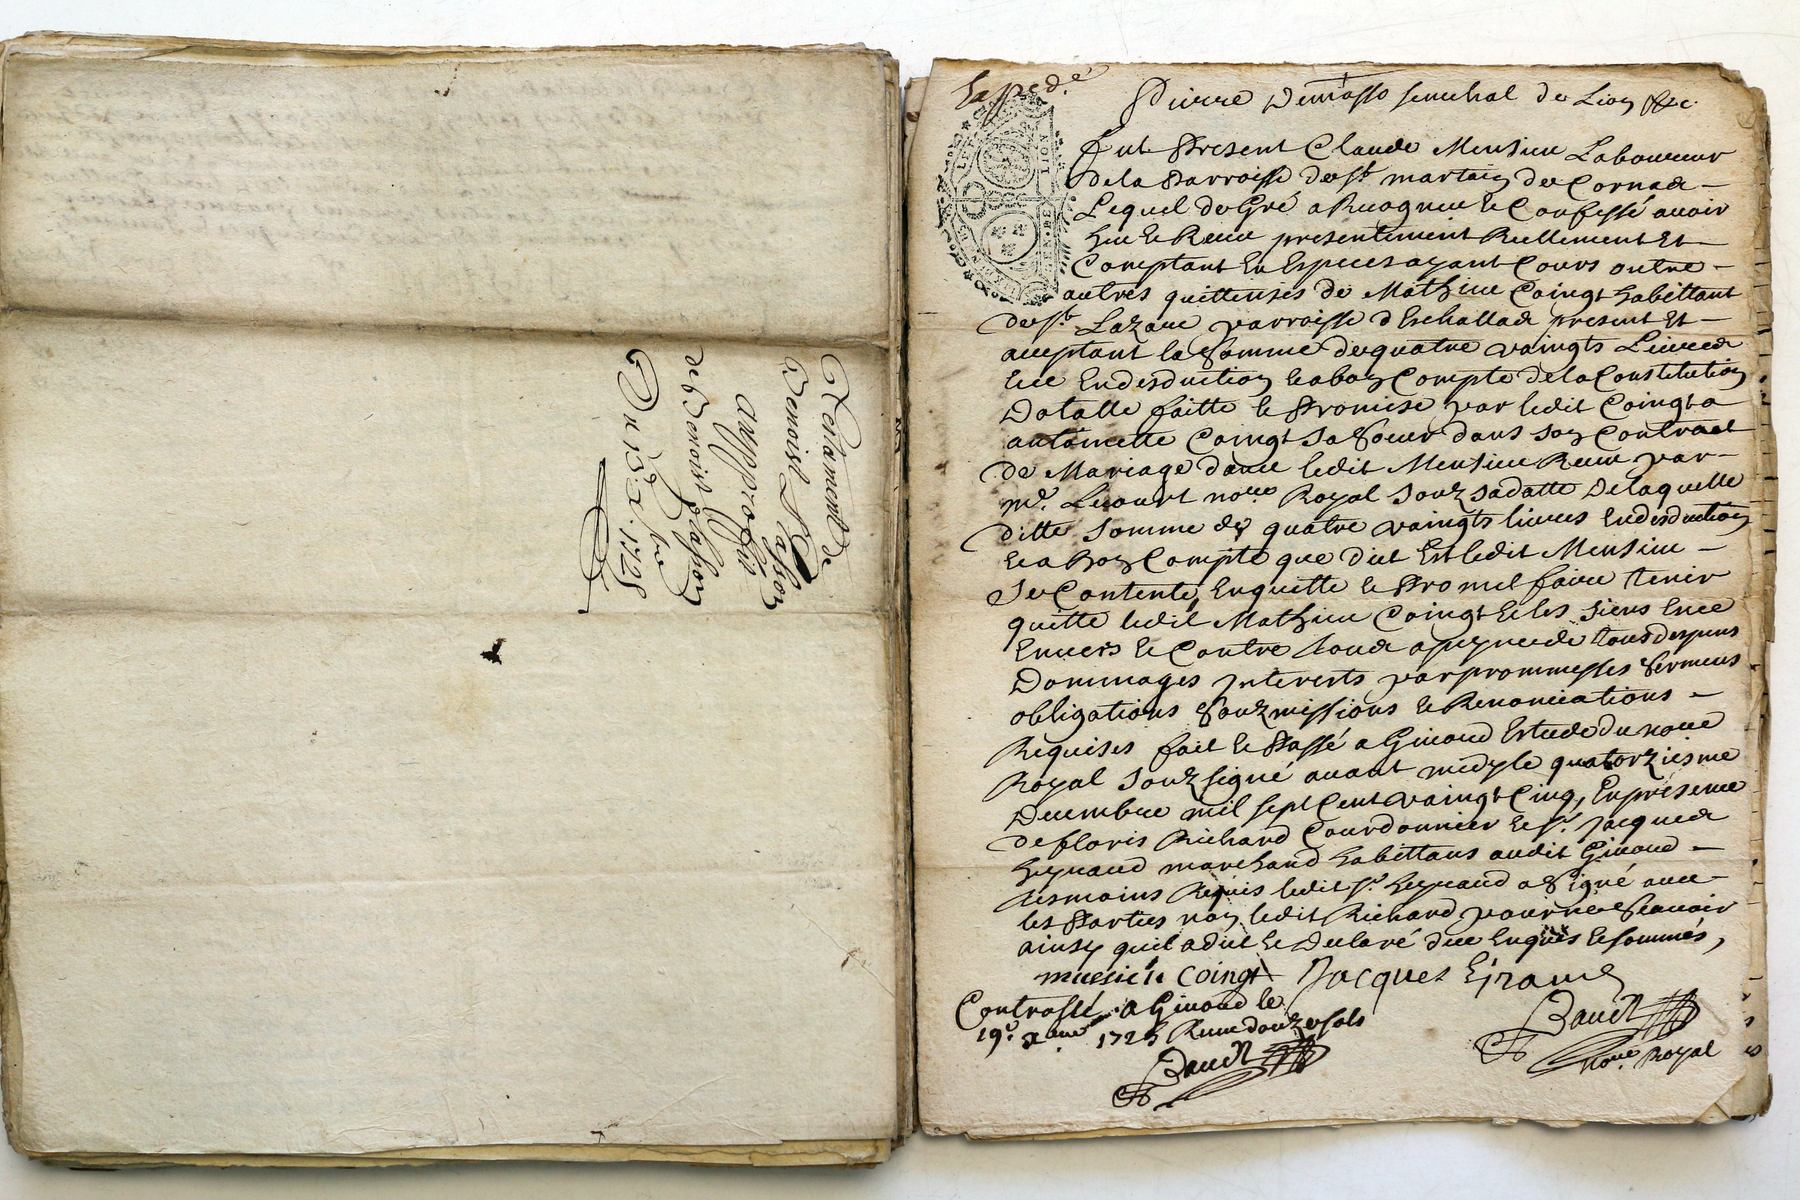 Testament de
Benoist Pashon
au proffis
de Benoist Pashon
Du 13e xbre 1725
Expedié
Pierre Demasso senechal de Lion &c.
LION
Fut Present Claude Mensieu Laboureur
de la Parroisse de st martain de Cornas
Lequel de Gré a Recogneu et Confessé avoir
heu et Receu presentement Reellement et
Comptant en Especes ayant Cours outre
autres quittenses de Mathieu Coingt habittant
de st Lazare parroisse d'Eschallas present et
aceptant la somme de quatre vaingts Livres
en desduction et a bon Compte de la Constitution
Dotalle faitte et Promise par ledit Coingt a
antoinette Coingt sa soeur dans son Contract
de Mariage avec ledit Mensieu Receu par
me. Lecourt nore Royal souz sa datte De laquelle
ditte somme de quatre vaingts livres en desduction
et a Bon Compte que dict Est ledit Mensieu
Se Contente, Enquitte et Promet faire tenir
quitte ledit Mathieu Coingt et les siens
Envers et Contre tous a peyne de tous despens
Dommages Interests par prommesses serments
obligations souzmissions et Renonciations
Requises fait et Passé a Givord Estude du nore
Royal souzsigné avant midy le quatorziesme
Decembre mil sept Cent vaingt Cinq, En presence
de floris Richard Courdonnier et sr Jacques
Eyraud marchand habittans audit Givord
tesmoins Requis ledit sr Eyraud a signé avec
les Parties non ledit Richard pour ne scavoir
ainsy quil a dit et Declaré de ce Enquis et sommés,
coingt Jacques Eyraud
Controllé a Givord le
19e. xbre 1725 Receu douze sols
Baudt
Baudt
nore Royal